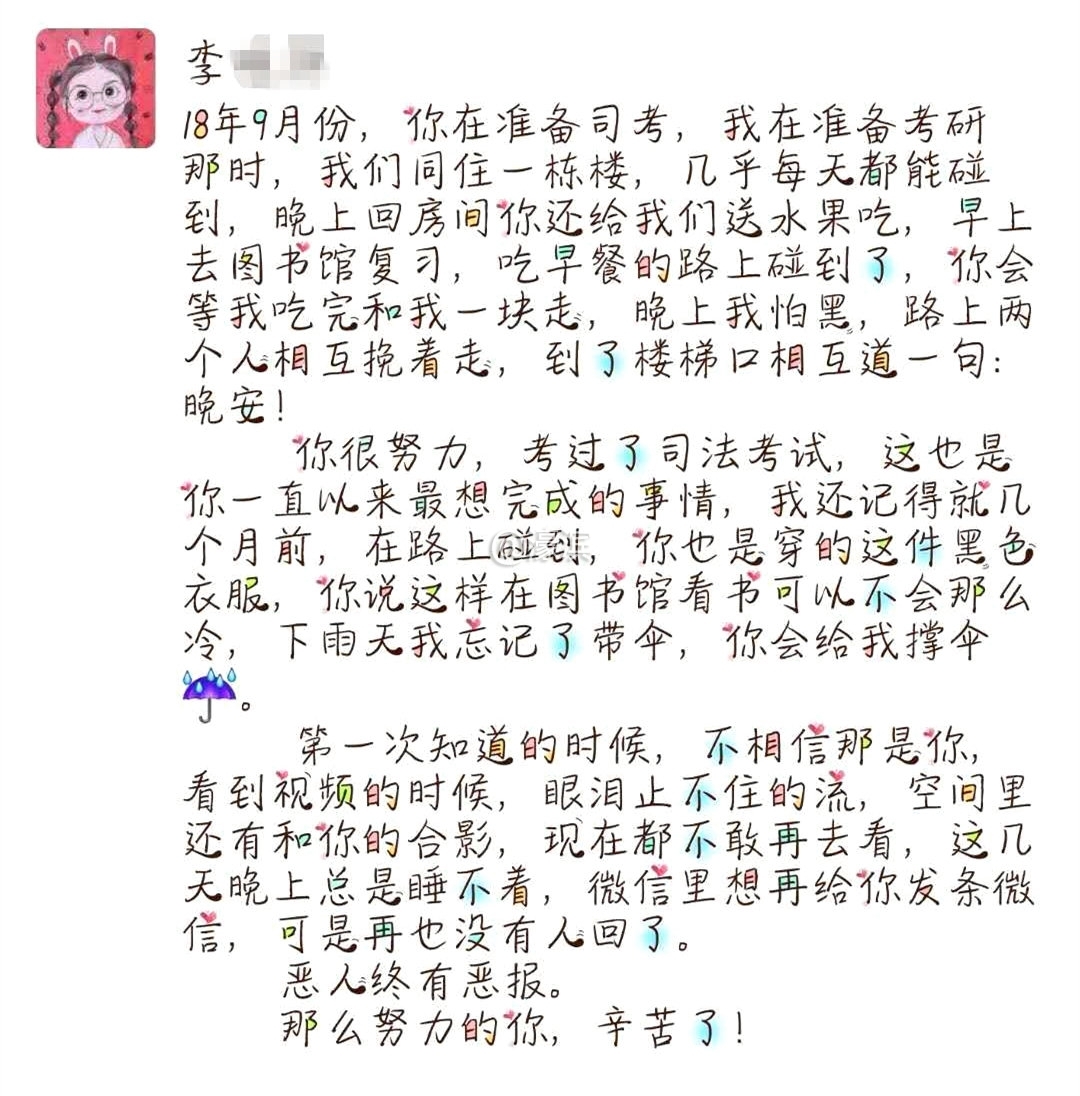 李
18年9月份，你在准备司考，我在准备考研
那时，我们同住一栋楼，几乎每天都能碰
到，晚上回房间你还给我们送水果吃，早上
去图书馆复习，吃早餐的路上碰到了，你会
等我吃完和我一块走，晚上我怕黑，路上两
个人相互挽着走，到了楼梯口相互道一句：
晚安！
你很努力，考过了司法考试，这也是
你一直以来最想完成的事情，我还记得就几
个月前，在路上碰到，你也是穿的这件黑色
衣服，你说这样在图书馆看书可以不会那么
冷，下雨天我忘记了带伞，你会给我撑伞
☔。
第一次知道的时候，不相信那是你，
看到视频的时候，眼泪止不住的流，空间里
还有和你的合影，现在都不敢再去看，这几
天晚上总是睡不着，微信里想再给你发条微
信，可是再也没有人回了。
恶人终有恶报。
那么努力的你，辛苦了！